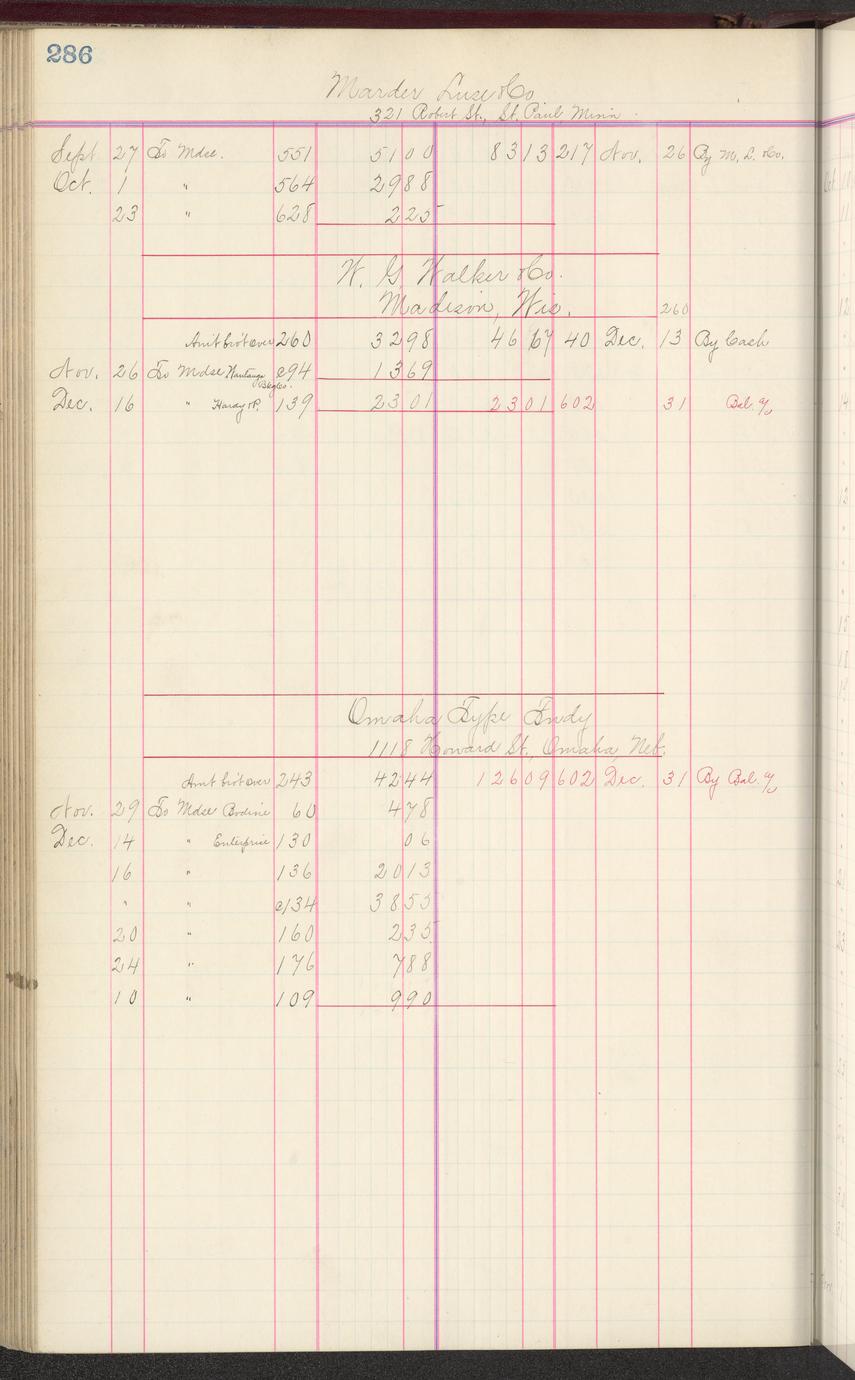 286
Marder Luse & Co
321 Robert St., St. Paul, Minn.
Sept 27 To Mdse. 551 51 00 83 13 217 Nov. 26 By M. L. & Co.
Oct. 1 " 564 29 88
23 " 628 2 25
W. G. Walker & Co.
Madison, Wis. 260
Am't bro't over 260 32 98 46 67 40 Dec. 13 By Cash
Nov. 26 To Mdse 94 13 69
Dec. 16 " Hardy & P. 139 23 01 23 01 602 31 Bal. %
Omaha Type Fndy
1118 Howard St., Omaha, Neb.
Am't bro't over 243 42 44 126 09 602 Dec. 31 By Bal. %
Nov. 29 To Mdse Bodine 60 4 78
Dec. 14 " Enterprise 130 06
16 " 136 20 13
" " c/134 38 55
20 " 160 2 35
24 " 176 7 88
10 " 109 9 90